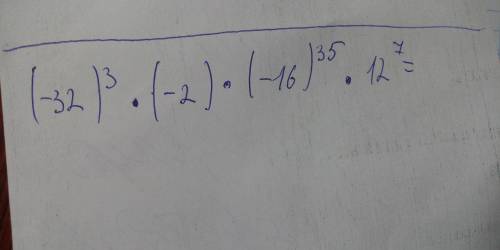 (-32)³ · (-2) · (-16)³⁵ · 12⁷ =